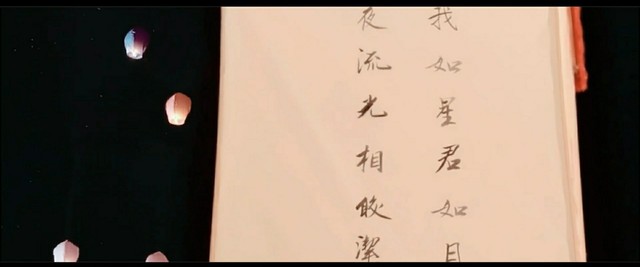 我如星君如月
夜流光相皎潔